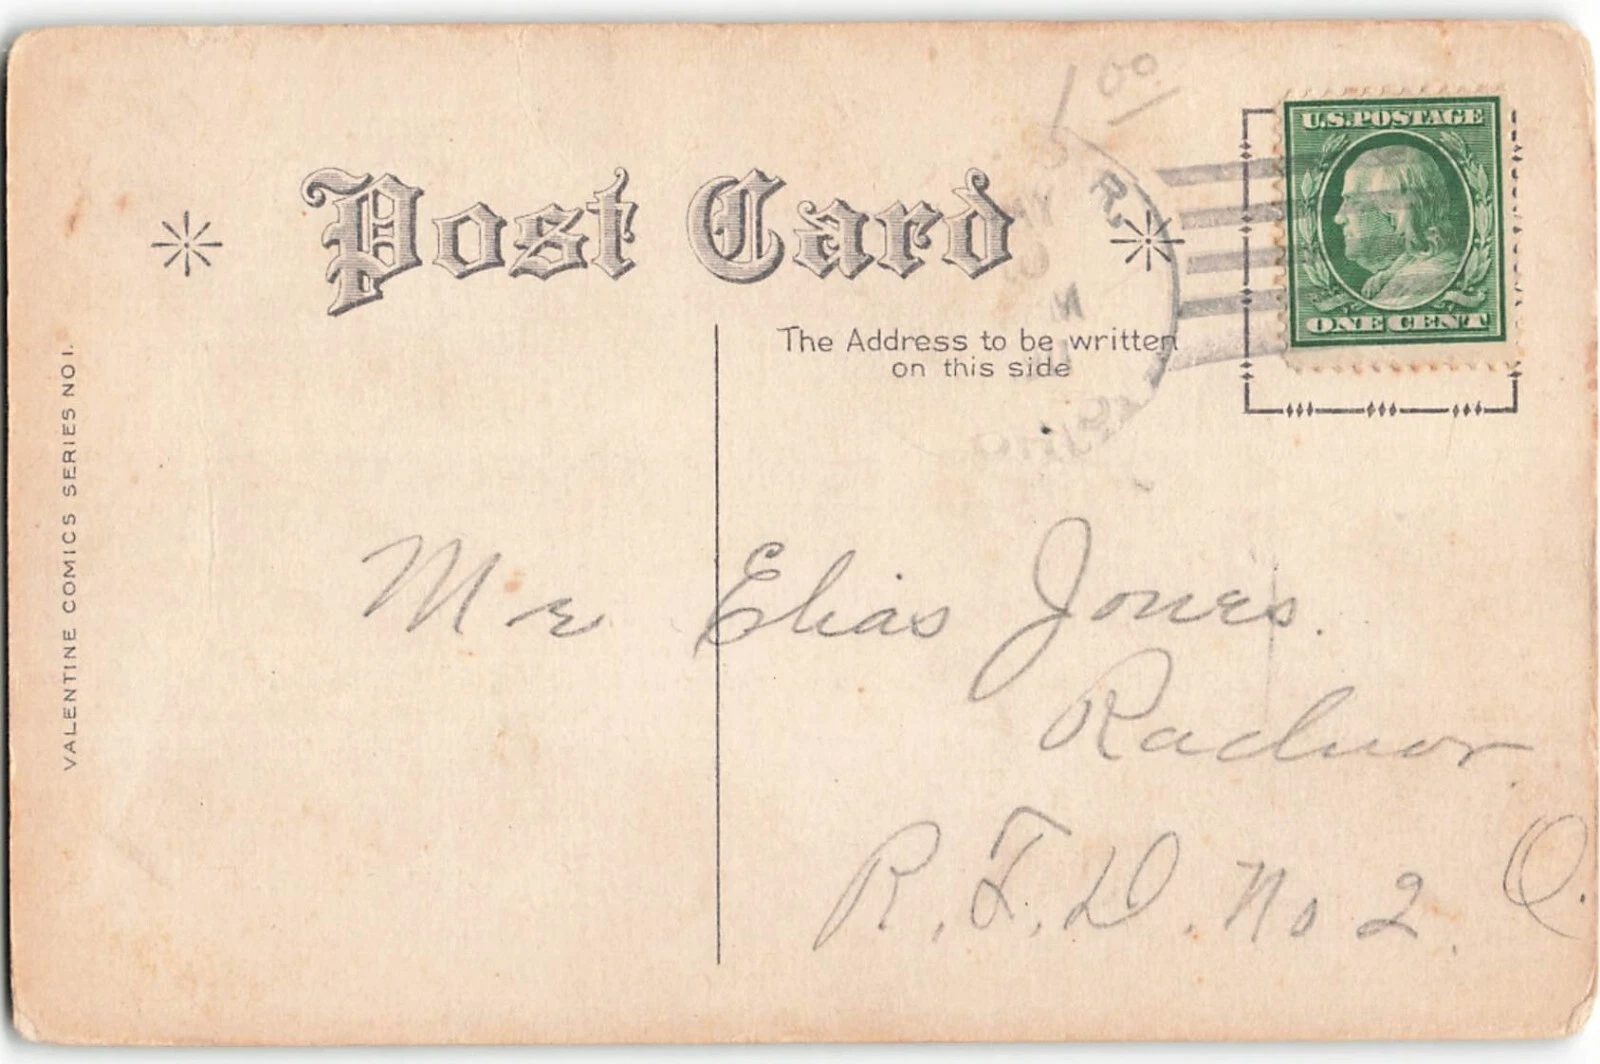 1 00
U.S. POSTAGE
Post Card
R.
The Address to be written
on this side
ONE CENT
VALENTINE COMICS SERIES NO 1.
Mr Elias Jones.
Radnor
R. F. D. No 2. O.